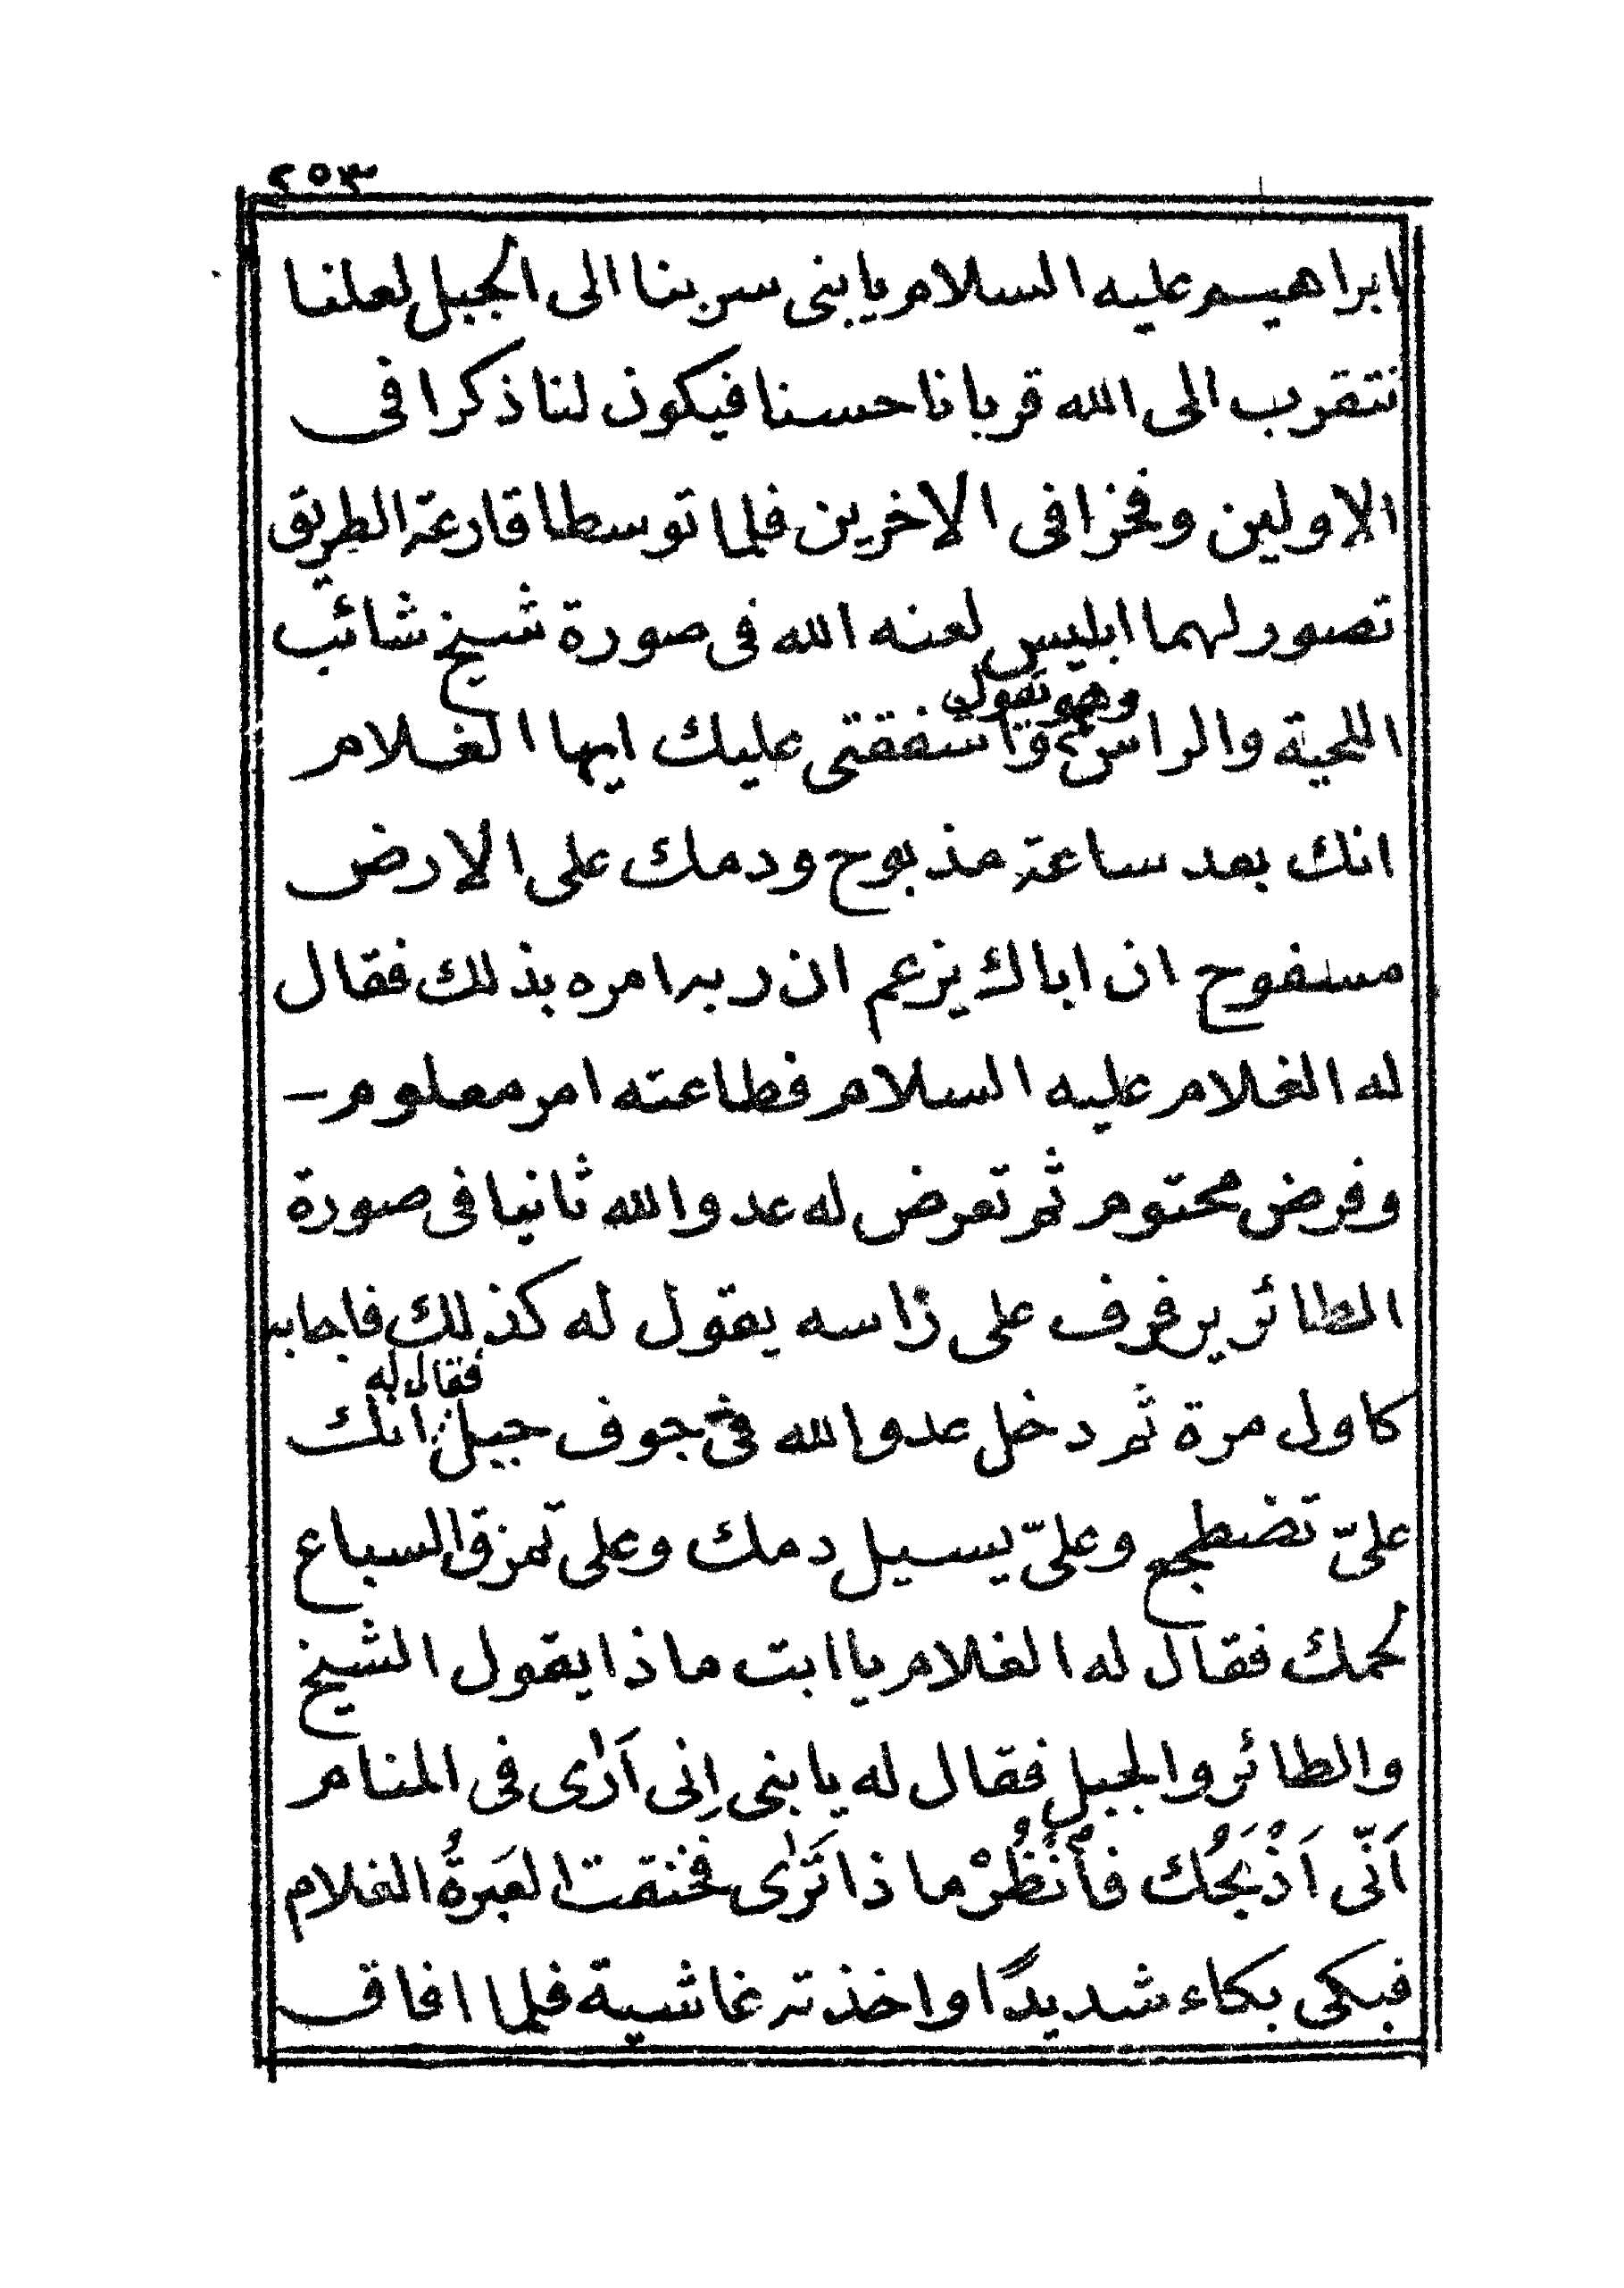 ٢٥٣
ابراهيم عليه السلام يا بنى سر بنا الى الجبل لعلنا
نتقرب الى الله قربانا حسنا فيكون لنا ذكرا فى
الاولين وفخرا فى الاخرين فلما توسطا قارعة الطريق
تصور لهما ابليس لعنه الله فى صورة شيخ شائب
وهو يقول
اللحية والراس واشفقتى عليك ايها الغلام
انك بعد ساعة مذبوح ودمك على الارض
مسفوح ان اباك يزعم ان ربه امره بذلك فقال
له الغلام عليه السلام فطاعته امر معلوم –
وفرض محتوم ثم تعرض له عدو الله ثانيا فى صورة
الطائر يرفرف على راسه يقول له كذلك فاجابه
فقال له
كاول مرة ثم دخل عدو الله فى جوف جبل انك
علىّ تضطجع وعلىّ يسيل دمك وعلى تمزق السباع
لحمك فقال له الغلام يا ابت ما ذا يقول الشيخ
والطائر والجبل فقال له يا بنى اِنى اَرٰى فى المنام
اَنّى اَذْبَحُك فأنْظُرْ ما ذا تَرٰى فخنقت العَبرةُ الغلام
فبكى بكاء شديدًا واخذته غاشية فلما افاق